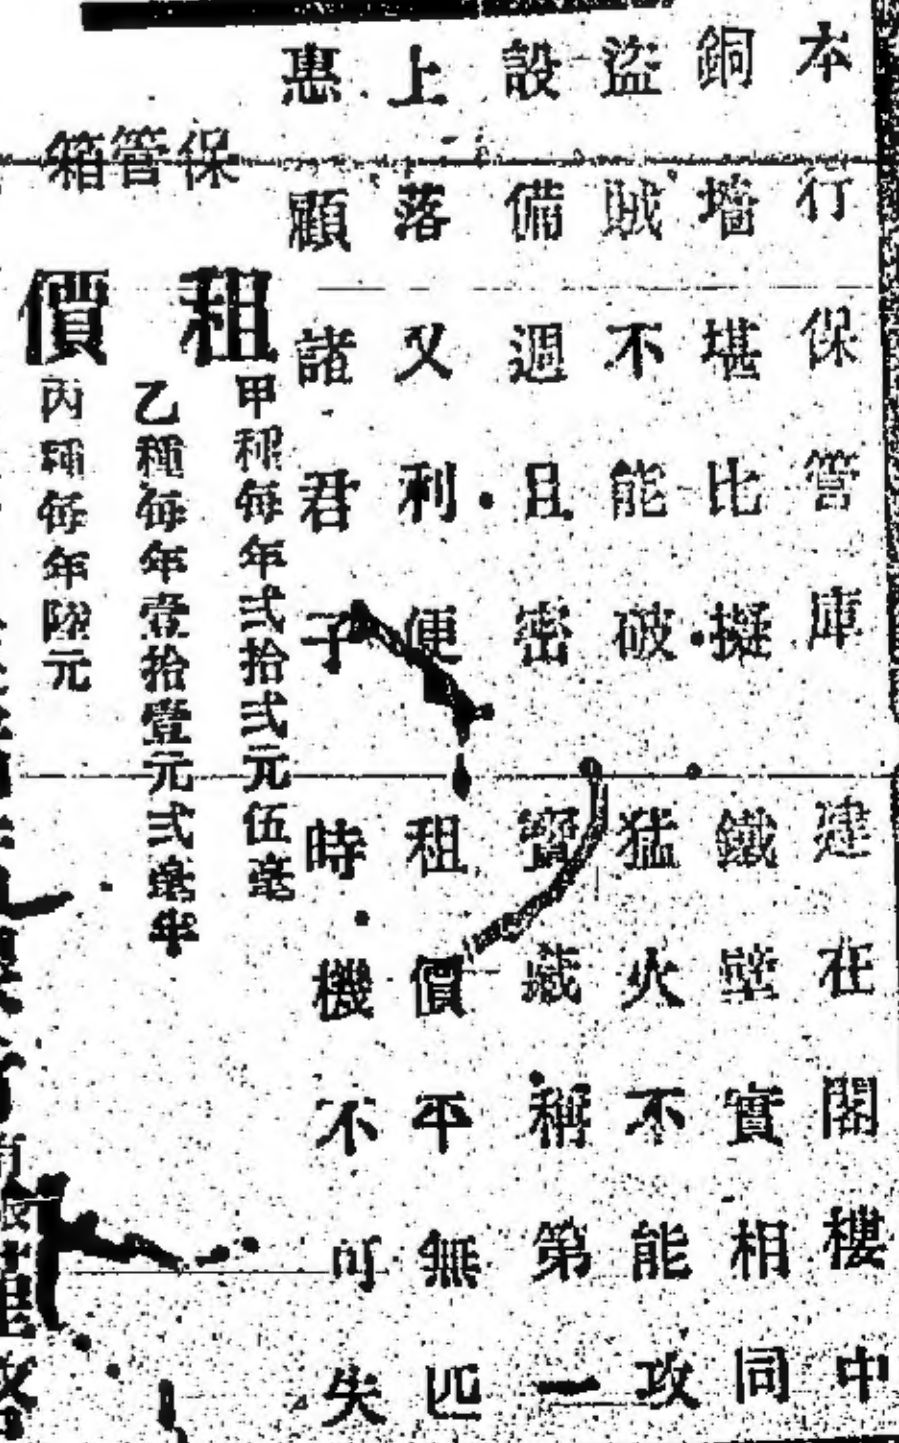 本行保管庫建在閣樓中
銅墻堪比擬鐵壁實相同
盜賊不能破猛火不能攻
設備週且密寶藏稱第一
上落又利便租價平無匹
惠顧諸君子時機不可失
保管箱
租價
甲種每年弍拾弍元伍毫
乙種每年壹拾壹元弍毫半
丙種每年陸元